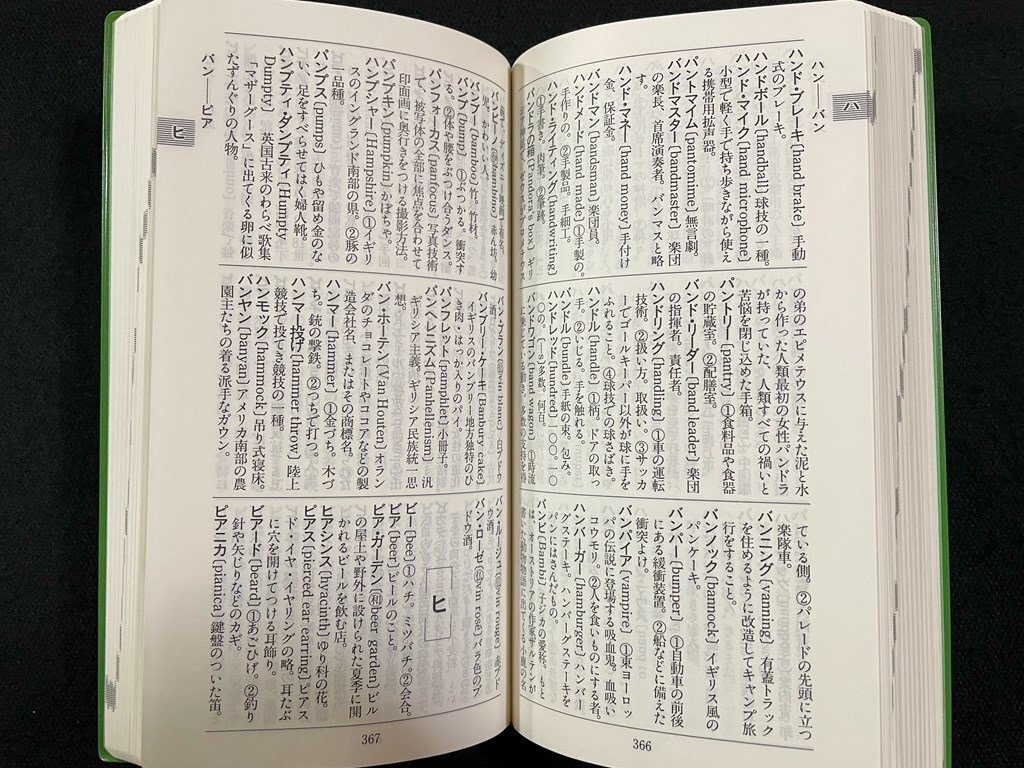 ハン――バン
ハ
ハンド・ブレーキ〔hand brake〕手動
式のブレーキ。
ハンドボール〔handball〕球技の一種。
ハンド・マイク〔hand microphone〕
小型で軽く手で持ち歩きながら使え
る携帯用拡声器。
パントマイム〔pantomime〕無言劇。
バンドマスター〔bandmaster〕楽団
の楽長、首席演奏者。バンマスと略
す。
ハンド・マネー〔hand money〕手付け
金、保証金。
バンドマン〔bandsman〕楽団員。
ハンドメイド〔hand made〕①手製の。
手作りの。②手製品。手細工。
ハンドライティング〔handwriting〕
①手書き。肉筆。②筆跡。
パンドラの箱〔Pandora's box〕ギリ
の弟のエピメテウスに与えた泥と水
から作った人類最初の女性パンドラ
が持っていた、人類すべての禍いと
苦悩を閉じ込めた手箱。
パントリー〔pantry〕①食料品や食器
の貯蔵室。②配膳室。
バンド・リーダー〔band leader〕楽団
の指揮者。責任者。
ハンドリング〔handling〕①車の運転
技術。②扱い方。取扱い。③サッカ
ーでゴールキーパー以外が球に手を
ふれること。④球技での球さばき。
ハンドル〔handle〕①柄、ドアの取っ
手。②いじる。手を触れる。
バンドル〔bundle〕手紙の束。包み。
ハンドレッド〔hundred〕一〇〇。一〇
〇の。(―s)多数。何百。
バンドワゴン〔band wagon〕①時流
ている側。②パレードの先頭に立つ
楽隊車。
バンニング〔vanning〕有蓋トラック
を住めるように改造してキャンプ旅
行をすること。
バンノック〔bannock〕イギリス風の
パンケーキ。
バンパー〔bumper〕①自動車の前後
にある緩衝装置。②船などに備えた
衝突よけ。
バンパイア〔vampire〕①東ヨーロッ
パの伝説に登場する吸血鬼。血吸い
コウモリ。②人を食いものにする者。
ハンバーガー〔hamburger〕ハンバー
グステーキ。ハンバーグステーキを
パンにはさんだもの。
バンビ〔Bambi〕子ジカの愛称。もと
は、オーストリアの作家ザルテンが
書いた動物物語に出てくる小鹿の名
366
バン――ピア
ヒ
バンビーノ〔㋑bambino〕赤ん坊。幼
児。かわいい人。
バンブー〔bamboo〕竹。竹材。
バンプ〔bump〕①ぶつかる。衝突す
る。②体や腰をぶつけ合うダンス。
パンフォーカス〔panfocus〕写真技術
で、被写体の全部に焦点を合わせて
印画面に奥行きをつける撮影方法。
パンプキン〔pumpkin〕かぼちゃ。
ハンプシャー〔Hampshire〕①イギリ
スのイングランド南部の県。②豚の
一品種。
パンプス〔pumps〕ひもや留め金のな
い、足をすべらせてはく婦人靴。
ハンプティ・ダンプティ〔Humpty
Dumpty〕英国古来のわらべ歌集
「マザーグース」に出てくる卵に似
たずんぐりの人物。
バンブリー・ケーキ〔Banbury cake〕
イギリスのバンブリー地方独特のひ
き肉・はっか入りのパイ。
パンフレット〔pamphlet〕小冊子。
パンヘレニズム〔Panhellenism〕汎
ギリシア主義。ギリシア民族統一思
想。
バン・ホーテン〔Van Houten〕オラン
ダのチョコレートやココアなどの製
造会社名、またはその商標名。
ハンマー〔hammer〕①金づち。木づ
ち。銃の撃鉄。②つちで打つ。
ハンマー投げ〔hammer throw〕陸上
競技で投てき競技の一種。
ハンモック〔hammock〕吊り式寝床。
バンヤン〔banyan〕アメリカ南部の農
園主たちの着る派手なガウン。
バン・ルージュ〔㋫vin rouge〕赤ブド
ウ酒。
バン・ローゼ〔㋫vin rosé〕バラ色のブ
ドウ酒。
ヒ
ビー〔bee〕①ハチ。ミツバチ。②会合。
ビア〔beer〕ビールのこと。
ビア・ガーデン〔㋻beer garden〕ビル
の屋上や野外に設けられた夏季に開
かれるビールを飲む店。
ヒアシンス〔hyacinth〕ゆり科の花。
ピアス〔pierced ear earring〕ピアス
ド・イヤ・イヤリングの略。耳たぶ
に穴を開けてつける耳飾り。
ビアード〔beard〕①あごひげ。②釣り
針や矢じりなどのカギ。
ピアニカ〔pianica〕鍵盤のついた笛。
367